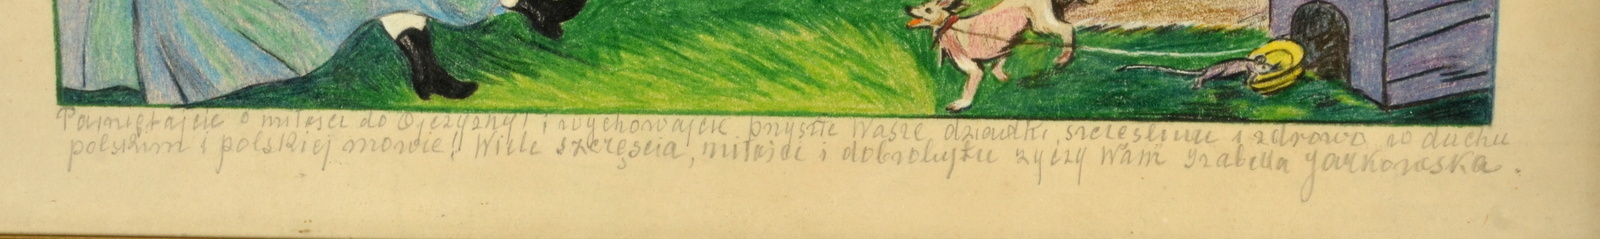 Pamiętajcie o miłości do Ojczyzny! i wychowajcie przyszłe Wasze dziadki, szczęśliwie i zdrowo, w duchu
polskim i polskiej mowie! Wiele szczęścia, miłości i dobrobytu życzy Wam Izabella Jarkowska.